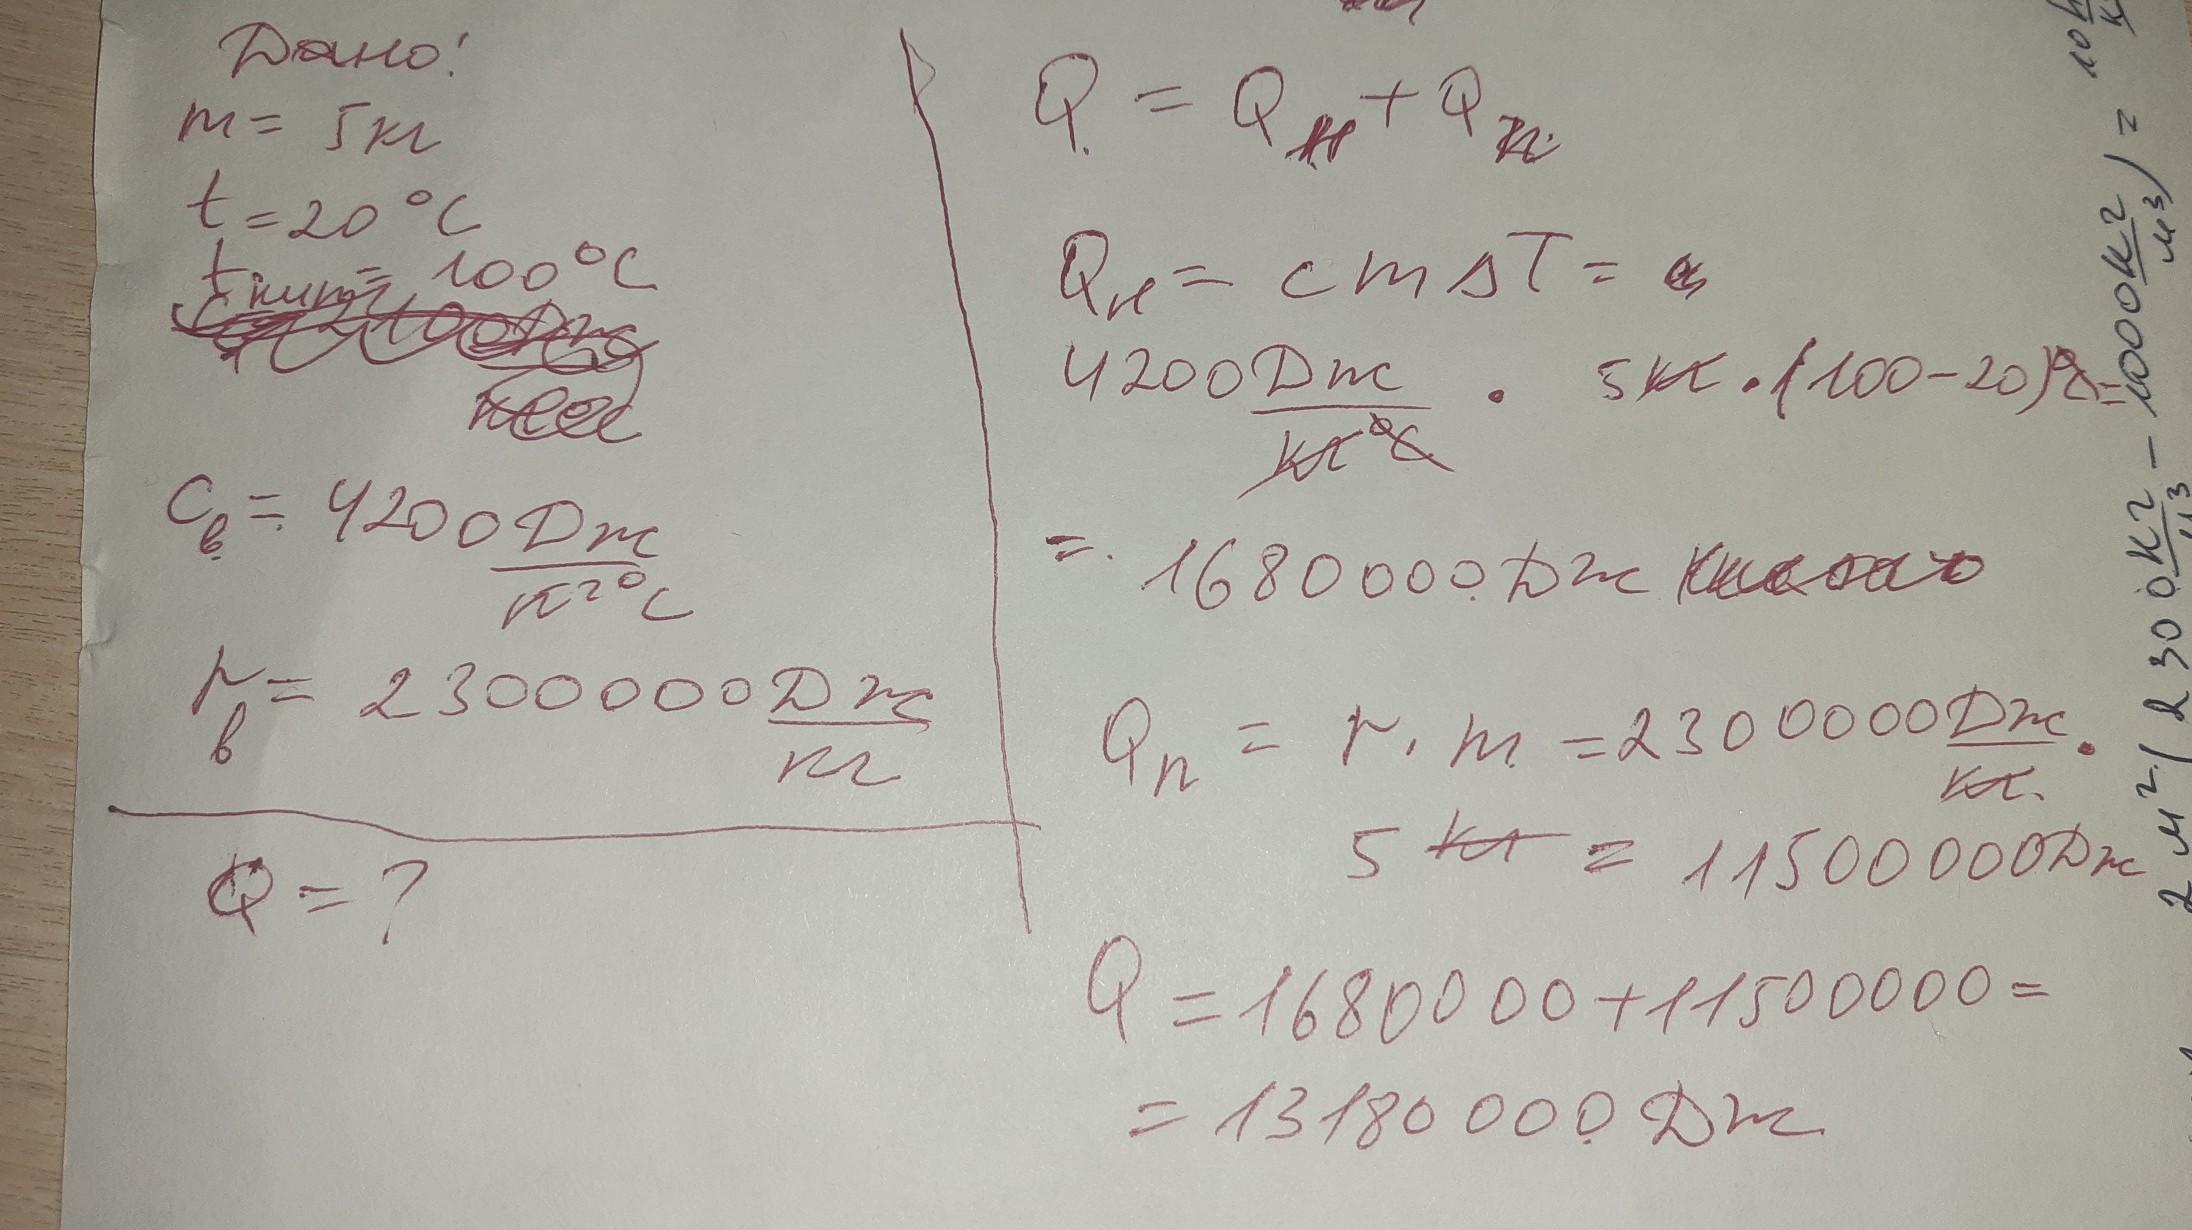 Дано:
m = 5 кг
t = 20 °C
t кип = 100 °C
c в = 4200 Дж
кг °C
r в = 2300000 Дж
кг
Q = ?
Q = Q н + Q п
Q н = c m ΔT =
4200 Дж · 5 кг · (100 - 20) °C =
кг °C
= 1680000 Дж
Q п = r · m = 2300000 Дж ·
кг
5 кг = 11500000 Дж
Q = 1680000 + 11500000 =
= 13180000 Дж
2 м² (2300 кг/м³ - 1000 кг/м³) =